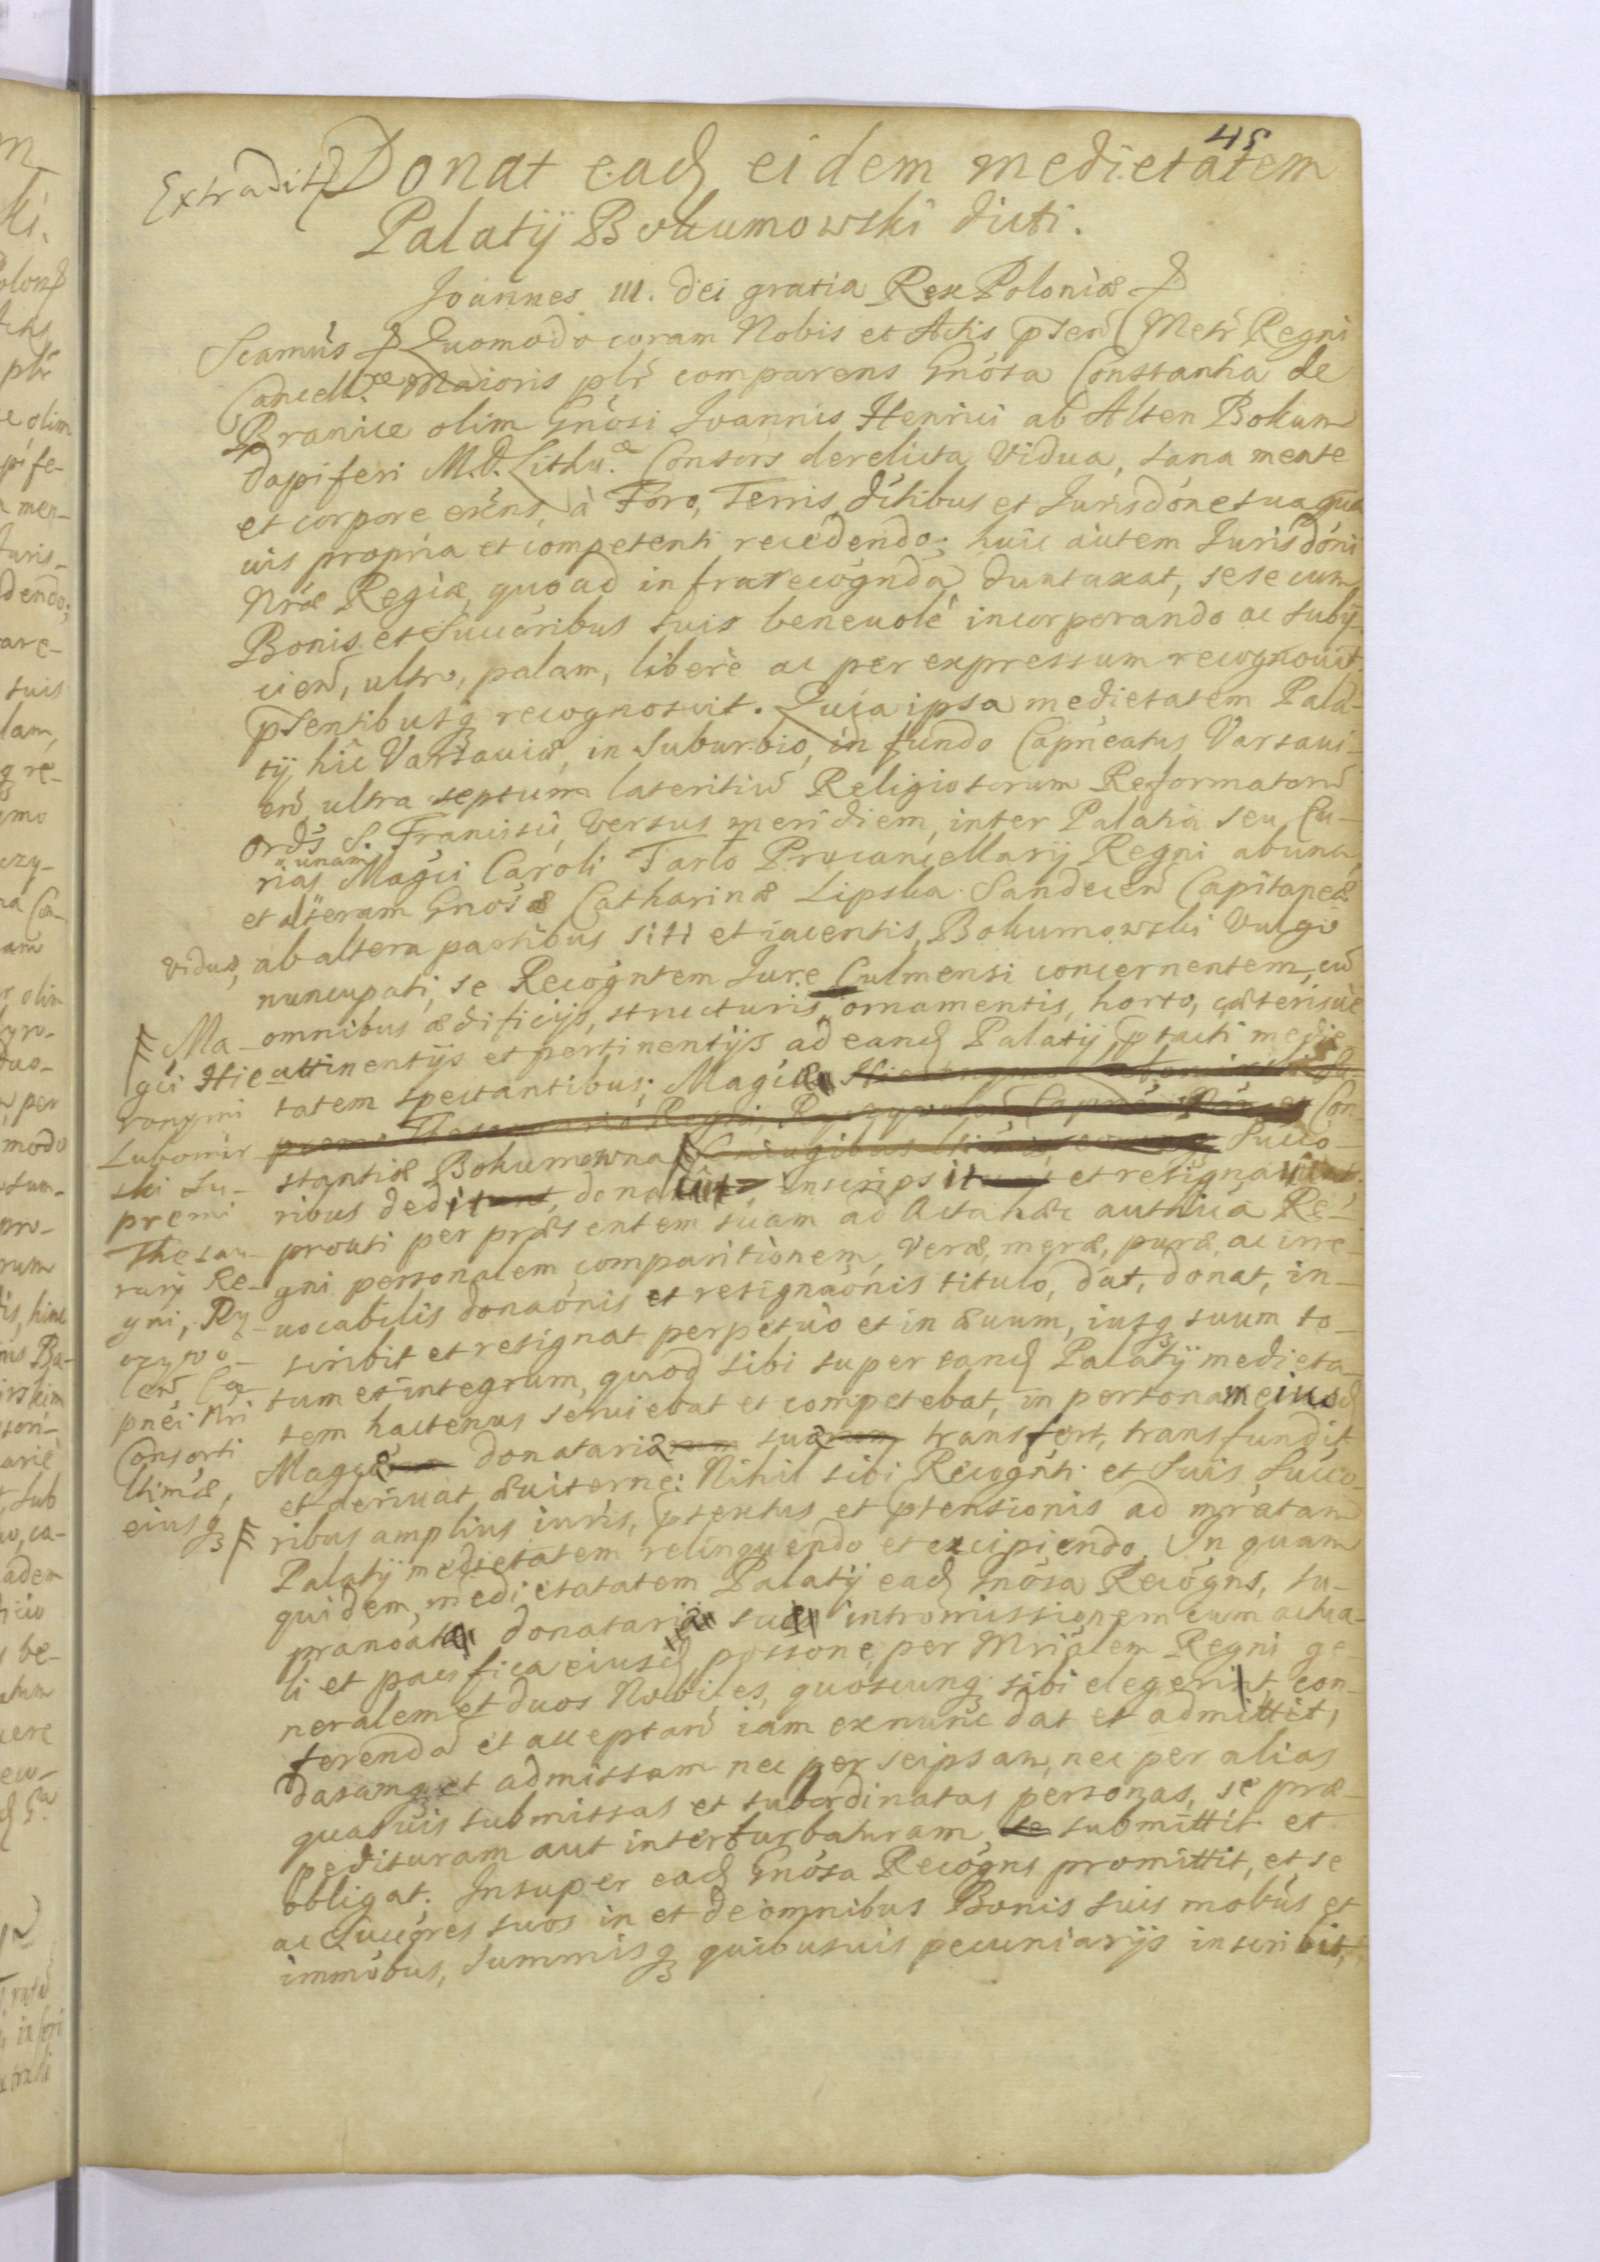 45
Extradit
Donat ead eidem medietatem
Palatij Bokumowski dicti.
Joannes III. dei gratia Rex Poloniæ
Scamus Quomodo coram Nobis et Actis pñteñ Metr Regni
Cancellræ Maioris plr comparens Gnósa Constantia de
Branice olim Gnósi Joannis Henrici ab Alten Bokum
dapiferi M.D. Lithu.æ Consors derelicta Vidua, sana mente
et corpore exñs, à Foro, Terris, dítibus et Jurisdóne sua qua
uis propria et competenti recedendo; huic autem Jurisdóni
Nræ Regiæ, quo ad infra recógnda, duntaxat, sese cum
Bonis et Succóribus suis beneuolé incorporando ac subij
cieñ, ultro, palam, liberè ac per expressum recognouit
pñsentibusq recognoscit. Quia ipsa medietatem Pala-
tij hic Varsauiæ, in suburbio, in fundo Capneatus Varsaui-
eñ ultra septum lateritiũ Religiosorum Reformatorũ
Ords S. Francisci, versus meridiem, inter Palatia seu Cu-
rias unam Magci Caroli Tarło Procancellarij Regni ab una,
et alteram Gnósæ Catharinæ Lipska Sandeceñ Capitaneæ
viduæ, ab altera partibus siti et iacentis, Bokumowski Vulgo
nuncupati, se Recógntem Jure Culmensi concernentem, cũ
omnibus ædificijs, structuris, ornamentis, horto, cæterisue
attinentijs et pertinentijs ad eand Palatij ptacti medie
tatem spectantibus; Magcæ
Con
stantiæ Bokumowna Succó-
ribus dedit, donauit, inscripsit et resignauit,
prouti per præsentem suam ad Acta hæc authca Re-
gni personalem comparitionem, veræ, meræ, puræ, ac irre-
uocabilis donaónis et resignaónis titulo, dat, donat, in-
scribit et resignat perpetuò et in æuum, iusq suum to-
tum et integrum, quod sibi super eand Palatij medieta-
tem hactenus seruiebat et competebat, in personam eiusd
Magcæ donatariæ suæ transfert, transfundit
et deriuat æuiterne: Nihil sibi Recógnti et Suis Succó
ribus amplius iuris, ptextus et ptensionis ad mratam
Palatij medietatem relinquendo et excipiendo. In quam
quidem, medietatatem Palatij ead Gnósa Recógns, su-
pranóatæ donatariæ suæ intromissionem cum actua-
li et pacifica eiusd possone, per Mrialem Regni ge-
neralem et duos Nobiles, quoscunq sibi elegerit, con-
ferenda et acceptañ iam ex nunc dat et admittit,
datamq et admissam nec per seipsam, nec per alias
quasuis submissas et subordinatas personas, se præ-
pedituram aut interturbaturam, se submittit et
obligat. Insuper ead Gnósa Recógns promittit, et se
ac Succóres suos in et de omnibus Bonis suis mobùs et
immóbus, Summisq quibusuis pecuniarijs inscribit,
Ma-
gci Hie
ronymi
Lubomir
ski Su-
premi
Thesau-
rarij Re-
gni, Ry-
czywo-
leñ Ca
pnei Nri
Consorti
ltimæ,
eiusq